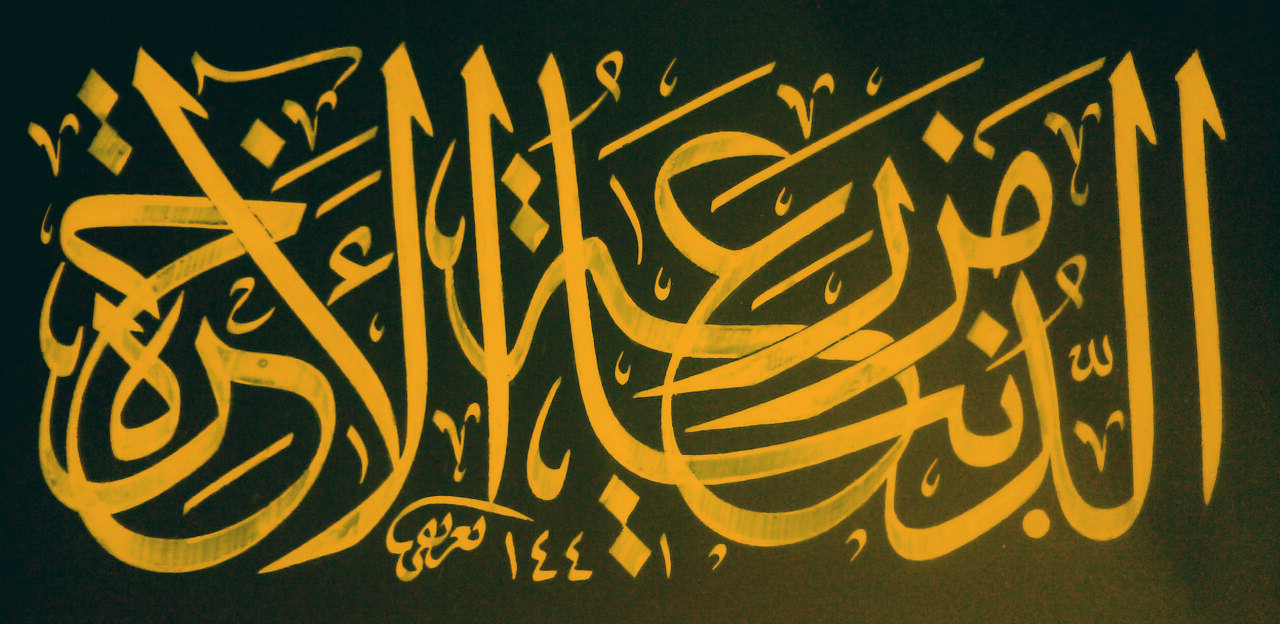 الدُّنْيَا مَزْرَعَةُ الْأٰخِرَةِ
١٤٤١